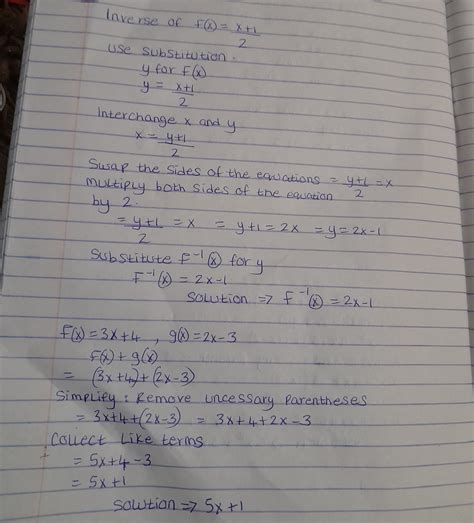 Inverse of F(x) = x+1/2
Use substitution.
y for f(x)
y = x+1/2
Interchange x and y
x = y+1/2
Swap the sides of the equations = y+1/2 = x
multiply both sides of the equation
by 2.
= y+1/2 = x = y+1 = 2x = y = 2x-1
Substitute F⁻¹(x) for y
F⁻¹(x) = 2x-1
Solution => F⁻¹(x) = 2x-1
F(x) = 3x+4 , g(x) = 2x-3
F(x) + g(x)
= (3x+4)+(2x-3)
Simplify : Remove uncessary Parentheses
= 3x+4+(2x-3) = 3x+4+2x-3
Collect Like terms
= 5x+4-3
= 5x+1
Solution => 5x+1